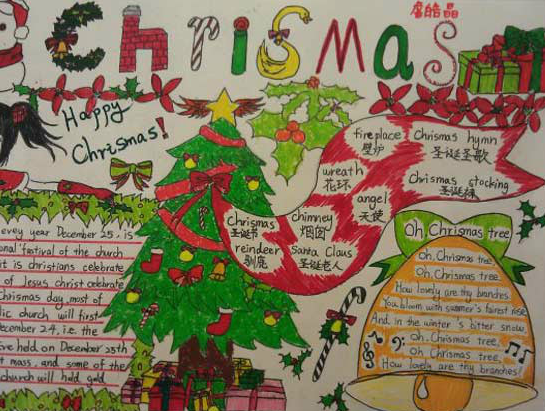 ChriSmaS
Happy
Chrismas!
fireplace
壁炉
Chrismas hymn
圣诞圣歌
wreath
花环
angel
天使
Chrismas stocking
圣诞袜
Chrismas
圣诞节
chimney
烟囱
reindeer
驯鹿
Santa Claus
圣诞老人
evey year December 25, is
festival of the church
it is christians celebrate
of Jesus christ celebrate
day, most of
church will first
24, i.e. the
held on December 25th
mass, and some of the
church will hold gold
Oh, Chrismas tree
Oh, Chrismas tree
Oh, Chrismas tree.
How lovely are thy branches.
You bloom with summer's fairest rise
And in the winter's bitter snow,
Oh, Chrismas tree,
Oh, Chrismas tree.
How lovely are thy branches!